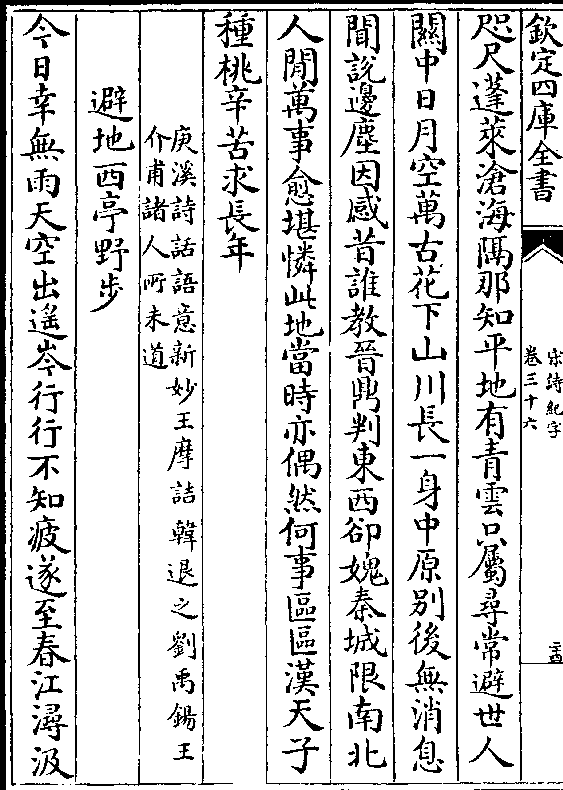 欽定四庫全書
宋詩紀字
卷三十六
二十四
咫尺蓬萊滄海隅那知平地有青雲只屬尋常避世人
關中日月空萬古花下山川長一身中原别後無消息
聞說邊塵因感昔誰教晉鼎判東西卻媿秦城限南北
人間萬事愈堪憐此地當時亦偶然何事區區漢天子
種桃辛苦求長年
庚溪詩話語意新妙王摩詰韓退之劉禹錫王
介甫諸人所未道
避地西亭野步
今日幸無雨天空出遙岑行行不知疲遂至春江潯汲